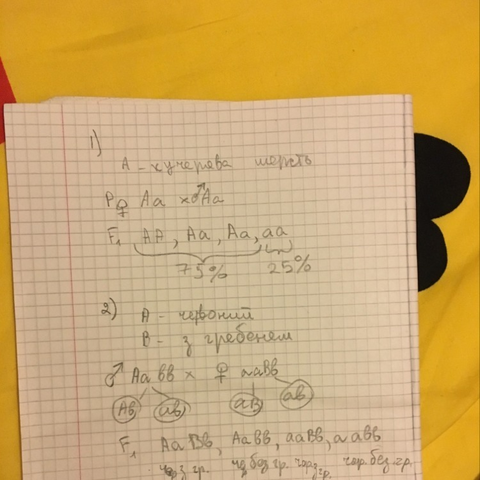 1)
А - кучерява шерсть
P ♀ Aa x ♂ Aa
F₁ AA, Aa, Aa, aa
75% 25%
2) A - червоний
B - з гребенем
♂ Aa bb x ♀ aaBb
Ab ab aB ab
F₁ AaBb, Aabb, aaBb, aabb
з гр. без гр. гр. чор. без. гр.